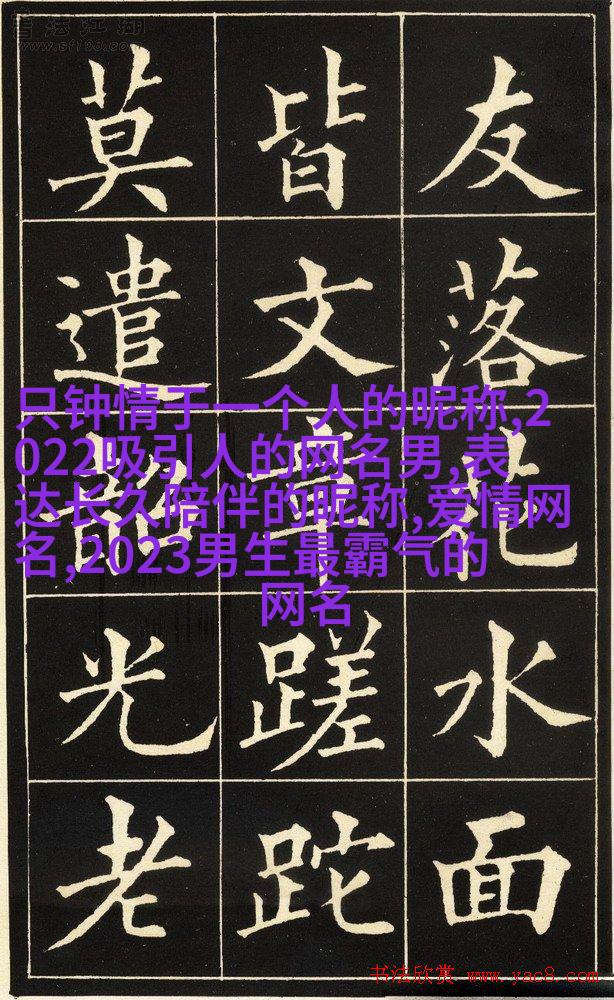 友落花水面
皆文章蹉跎
莫遣韶光老
只钟情于一个人的昵称,2
022吸引人的网名男,表
达长久陪伴的昵称,爱情网
名,2023男生最霸气的
网名
书法欣赏 www.yac8.com